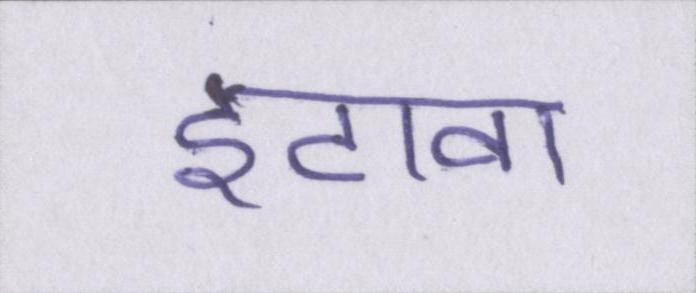 इटावा